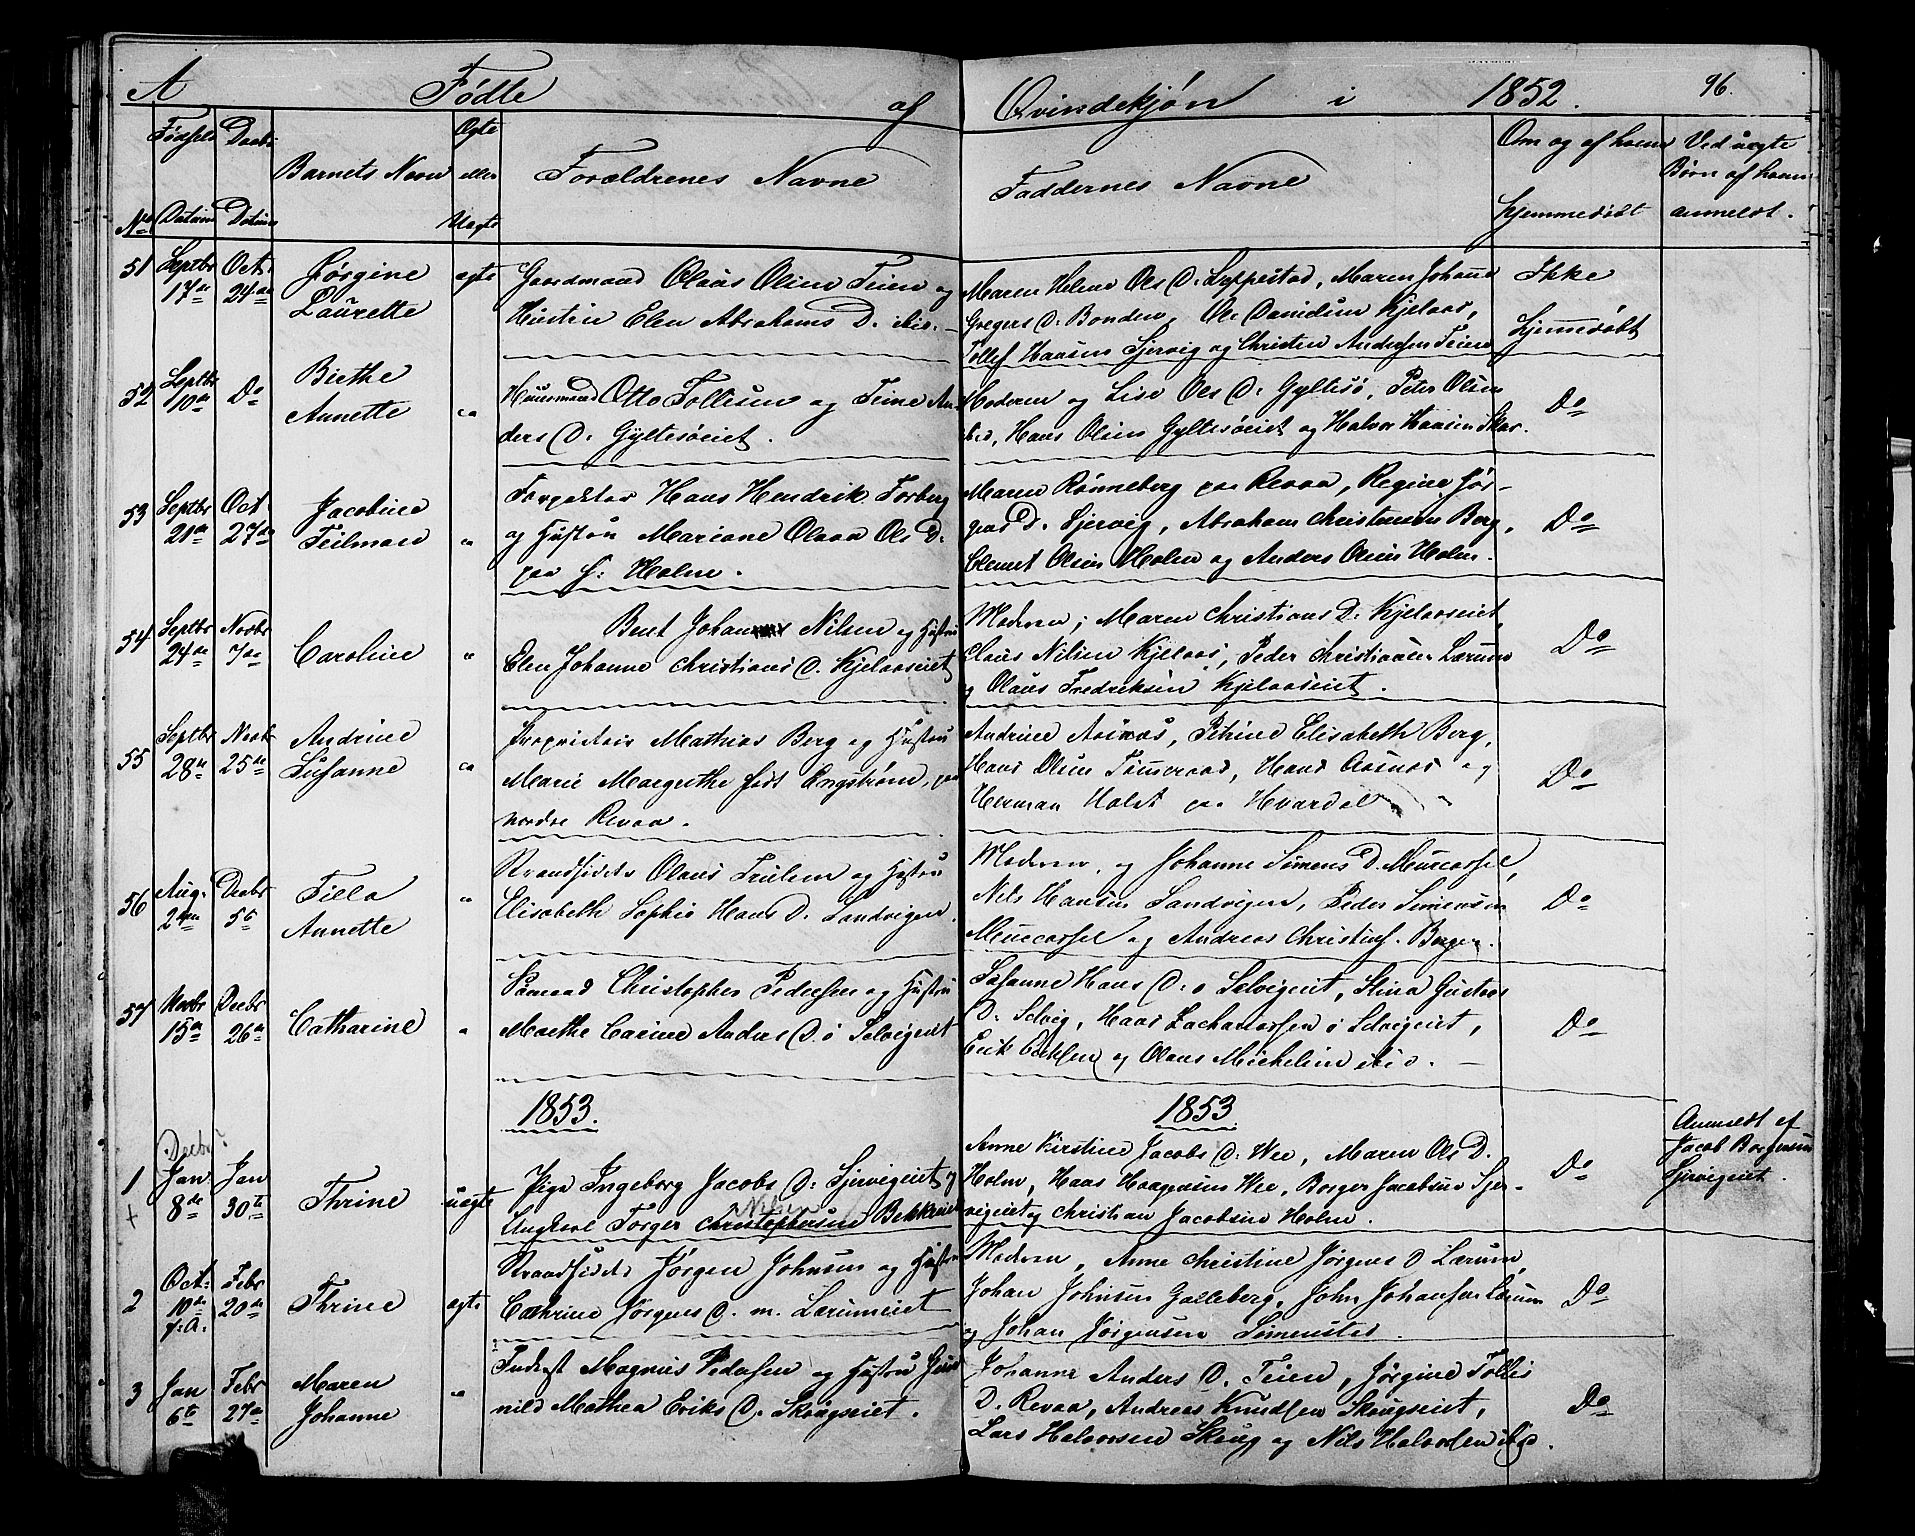 A Fødte af Qvindekjøn i 1852. 96.
Fødsels Daabs Barnets Navn Ægte eller Uægte Forældrenes Navne Faddernes Navne Om og af hvem hjemmedøbt Ved uægte Børn af hvem anmeldt.
No Datum Datum
51 Septbr 17de Oct. 24de Jørgine Laurette ægte Gaardmand Olaus Olsen Teien og
Hustru Elen Abrahams D. ibid.
Maren Helene Ols D. Lyppestad, Maren Johanne
Gregers D. Bonden, Ole Davidsen Kjelaas,
Tollef Hansen Sjervig og Christen Andersen Teien
Ikke
hjemmedøbt
52 Septbr 10de Do Birthe Annette " Huusmand Otto Tollisen og Trine An-
ders D. Gyltesøeiet.
Moderen og Lise Ols D. Gyltesø, Peter Olsen
ibid, Hans Olsen Gyltesøeiet og Halvor Hansen Skar.
Do
53 Septbr 21de Oct. 27de Jacobine Teilman " Forpagter Hans Hendrik Forberg
og Hustru Mariane Olava Ols D.
paa s: Holm.
Maren Rønneberg paa Revaa, Regine Jør-
gas D. Sjervig, Abraham Christensen Berg,
Clemet Olsen Holm og Anders Olsen Holm.
Do
54 Septbr 24de Novbr 7de Caroline " Bent Johan Nilsen og Hustru
Elen Johanne Christians D. Kjelaaseiet
Moderen; Maren Christians D. Kjelaaseiet,
Claus Nilsen Kjelaas, Peder Christiansen Lærum
og Olaus Fredriksen Kjelaaseiet.
Do
55 Septbr 28de Novbr 25de Andrine Susanne " Proprietair Mathias Berg og Hustru
Marie Margrethe født Engstrøm, paa
nordre Revaa.
Andrine Aasnæs, Petrine Elisabeth Berg,
Hans Olsen Tømeraas, Hans Aasnæs og
Herman Holst paa Hvardal
Do
56 Aug. 24de Decbr 5te Tilla Annette " Strandsidder Olaus Trulsen og Hustru
Elisabeth Sophie Hans D. Sandvigen.
Moderen, og Johanne Simens D. Muecassel,
Nils Hansen Sandvigen, Peder Simensen
Muecassel og Andreas Christians. Berger.
Do
57 Novbr 15de Decbr 26de Catharine " Sømand Christopher Pedersen og Hustru
Marthe Carine Anders D. i Selvigeiet
Susanne Hans D. i Selvigeiet, Stina Gustavs
D. Selvig, Hans Zachariassen i Selvigeiet,
Erik Eriksen og Olaus Mickelsen ibid.
Do
1853. 1853
Decbr?
1 + Jan 8de Jan 30te Thrine uægte Pige Ingeborg Jacobs D. Sjervigeiet og
Nilsen
Ungkarl Torger Christophersen Bekkeiet
Anne Kirstine Jacobs D. Wee, Maren Ols D.
Holm, Hans Haagensen Wee, Borger Jacobsen Sjer-
vigeiet og Christian Jacobsen Holm.
Do
Anmeldt af
Jacob Borgersen
Sjervigeiet.
2 Oct. 10de f. A. Febr 20de Thrine ægte Strandsidder Jørgen Johnsen og Hustru
Cathrine Jørgens D. m. Lærumeiet
Moderen, Anne Christine Jørgens D Lærum,
Johan Johnsen Galleberg, John Johansen Lærum
og Johan Jørgensen Sømensted.
Do
3 Jan 6te Febr 27de Maren Johanne " Inderst Magnus Pedersen og Hustru Gun-
nild Mathea Eriks D. Skougseiet.
Johanne Anders D. Teien, Jørgine Tollis
D. Revaa, Andreas Knudsen Skougseiet,
Lars Halvorsen Skoug og Nils Halvorsen ibid.
Do